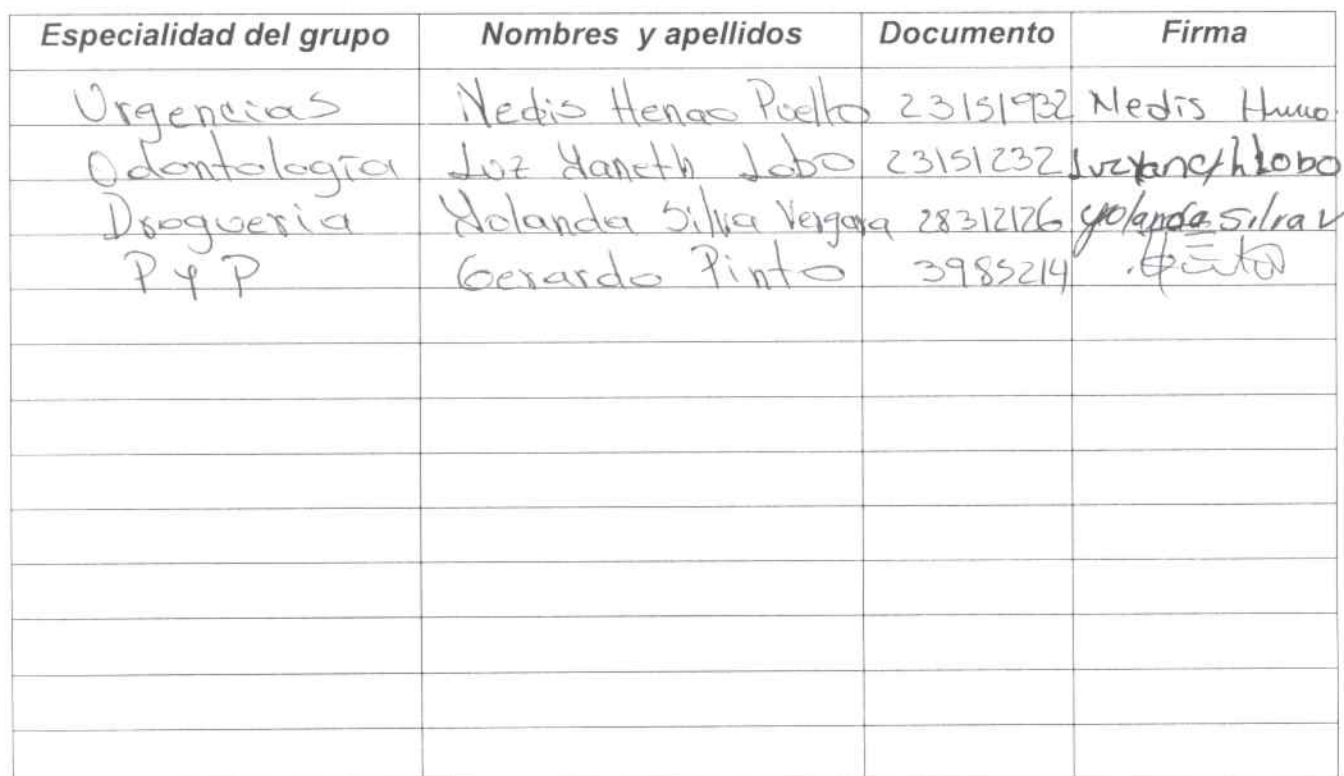 Especialidad del grupo Nombres y apellidos Documento Firma
Urgencias Nedis Henao Puello 23151932 Nedis Henao
Odontología Luz Yaneth Lobo 23151232 Luz Yaneth Lobo
Drogueria Yolanda Silva Vergara 28312126 Yolanda Silva V
P y P Gerardo Pinto 3985214